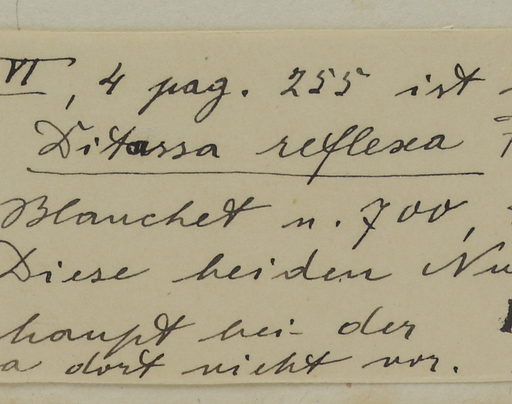 VI, 4 pag. 255 ist
Ditassa reflexa
Blanchet n. 700,
Diese beiden Nu
haupt bei der
a dort nicht vor.